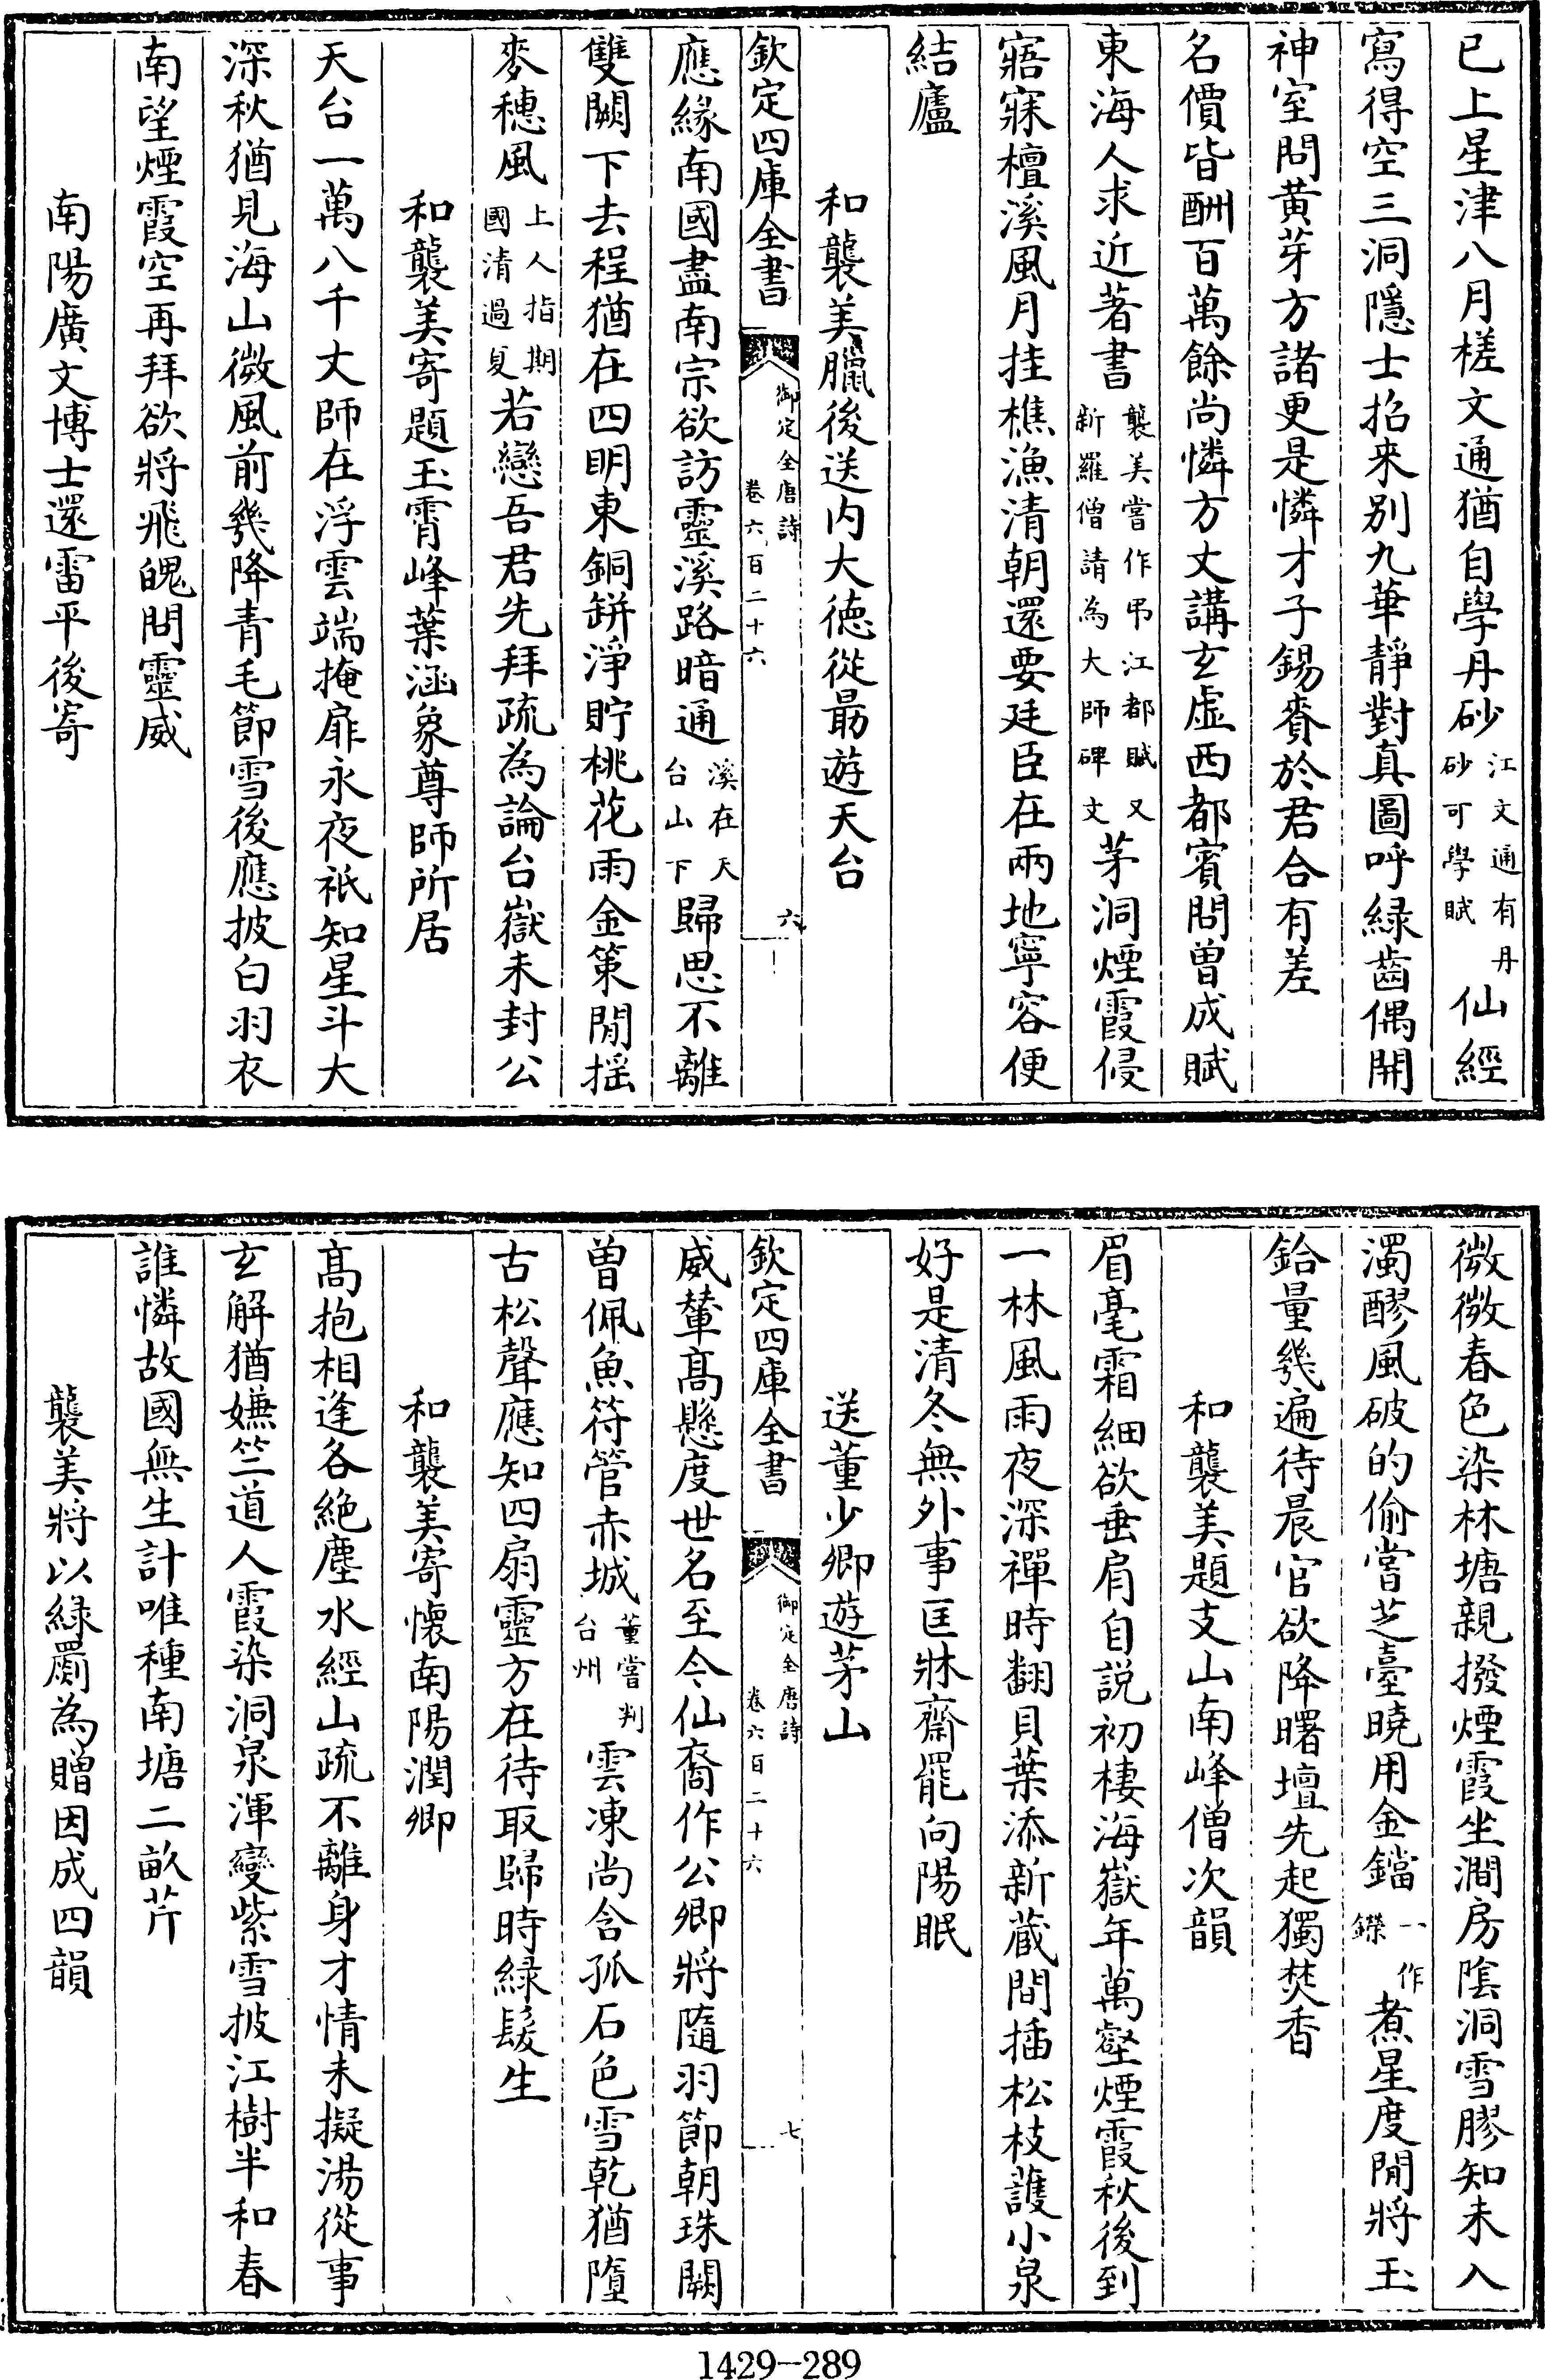 已上星津八月槎文通猶自學丹砂江文通有丹砂可學賦仙經
寫得空三洞隱士招來别九華靜對真圖呼緑齒偶開
神室問黄芽方諸更是憐才子錫賚於君合有差
名價皆酬百萬餘尚憐方丈講玄虚西都賓問曽成賦
東海人求近著書襲美嘗作弔江都賦又新羅僧請為大師碑文茅洞煙霞侵
寤寐檀溪風月挂樵漁清朝還要廷臣在兩地寧容便
結廬
和襲美臘後送内大徳從勗遊天台
欽定四庫全書
御定全唐詩
卷六百二十六
六
應緣南國盡南宗欲訪靈溪路暗通溪在天台山下歸思不離
雙闕下去程猶在四明東銅缾淨貯桃花雨金策閒揺
麥穗風上人指期國清過夏若戀吾君先拜疏為論台嶽未封公
和襲美寄題玉霄峰葉涵象尊師所居
天台一萬八千丈師在浮雲端掩扉永夜祇知星斗大
深秋猶見海山微風前幾降青毛節雪後應披白羽衣
南望煙霞空再拜欲將飛魄問靈威
南陽廣文博士還雷平後寄
微微春色染林塘親撥煙霞坐澗房隂洞雪膠知未入
濁醪風破的偷嘗芝臺曉用金鐺一作鑅煮星度閒將玉
鉿量幾遍待晨官欲降曙壇先起獨焚香
和襲美題支山南峰僧次韻
眉毫霜細欲垂肩自説初棲海嶽年萬壑煙霞秋後到
一林風雨夜深禪時翻貝葉添新藏間插松枝護小泉
好是清冬無外事匡牀齋罷向陽眠
送董少卿遊茅山
欽定四庫全書
御定全唐詩
卷六百二十六
七
威輦髙懸度世名至今仙裔作公卿將隨羽節朝珠闕
曽佩魚符管赤城董嘗判台州雲凍尚含孤石色雪乾猶墮
古松聲應知四扇靈方在待取歸時緑髮生
和襲美寄懐南陽潤卿
髙抱相逢各絶塵水經山疏不離身才情未擬湯從事
玄解猶嫌竺道人霞染洞泉渾變紫雪披江樹半和春
誰憐故國無生計唯種南塘二畝芹
襲美將以緑罽為贈因成四韻
1429-289